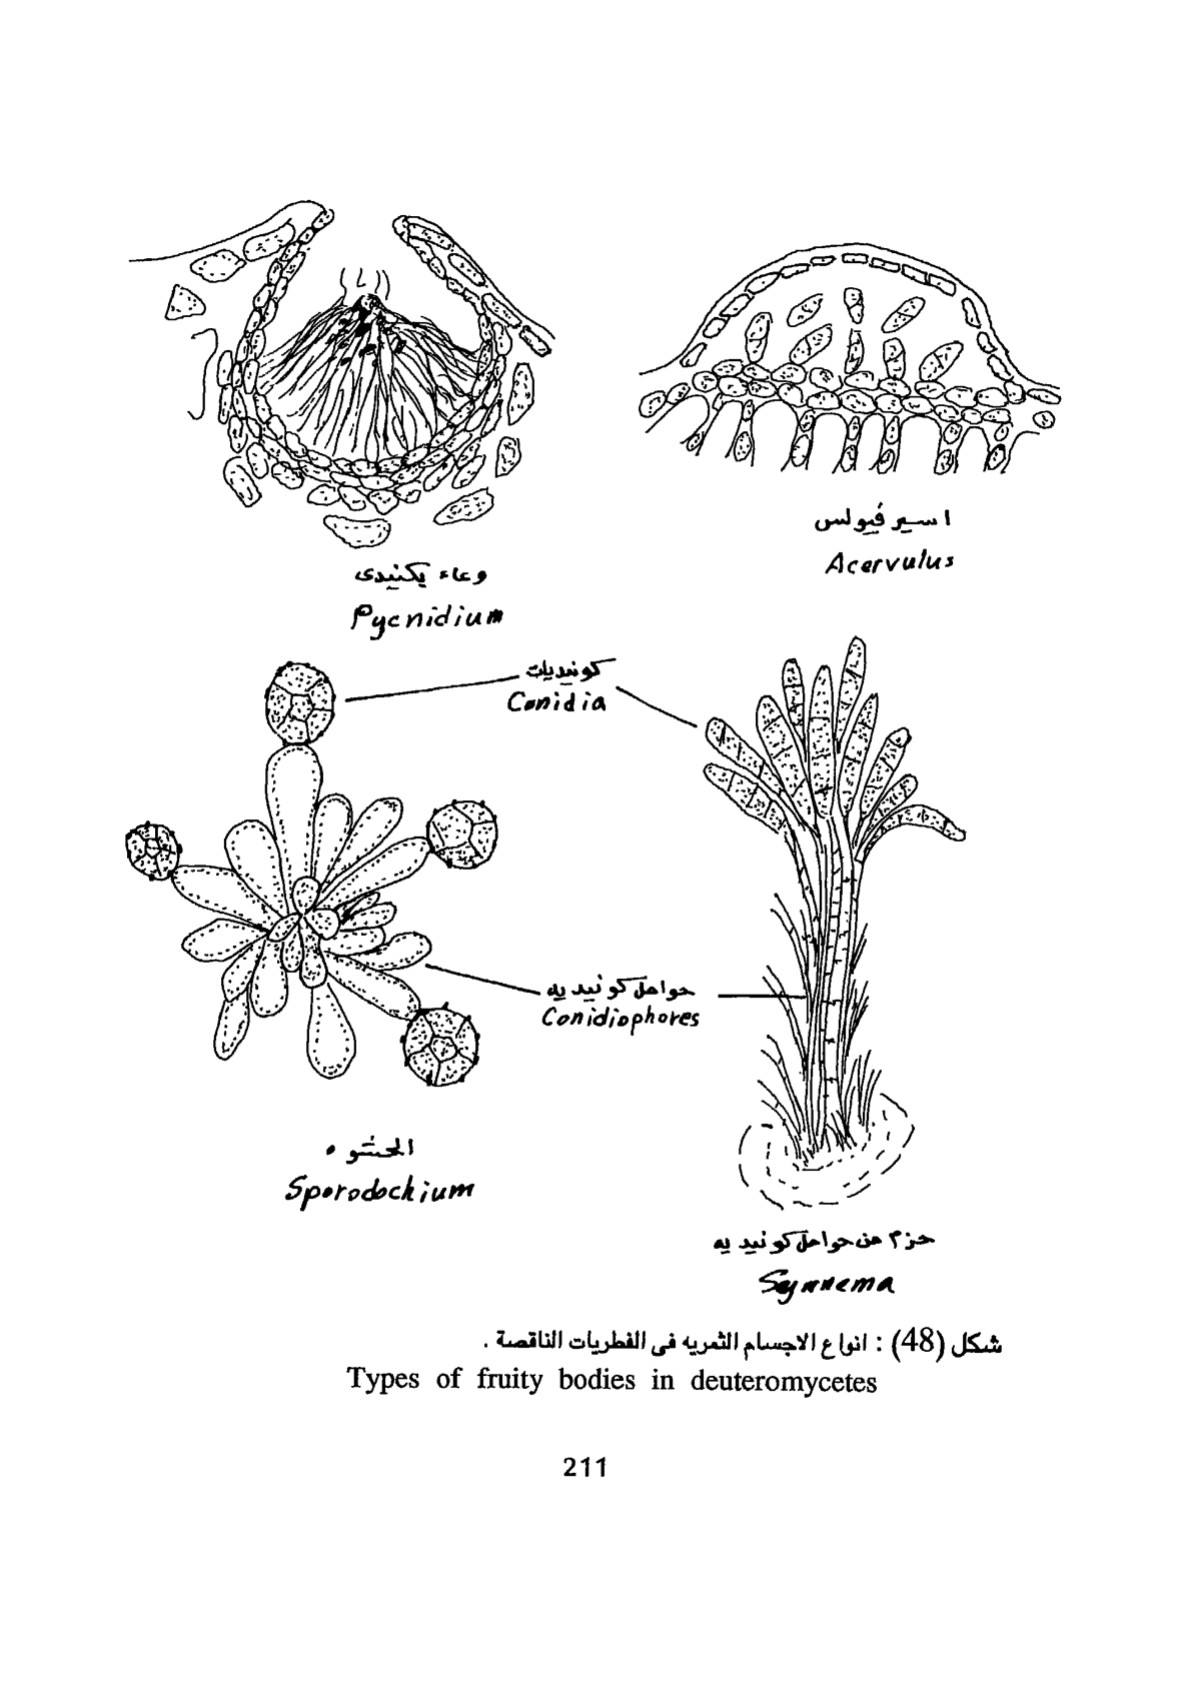 اسيرفيولس
Acervulus
وعاء بكنيدى
Pycnidium
كونيديات
Conidia
حوامل كونيديه
Conidiophores
Sporodochium
حزم من حوامل كونيديه
Synnema
شكل (48) : انواع الاجسام الثمريه فى الفطريات الناقصة .
Types of fruity bodies in deuteromycetes
211